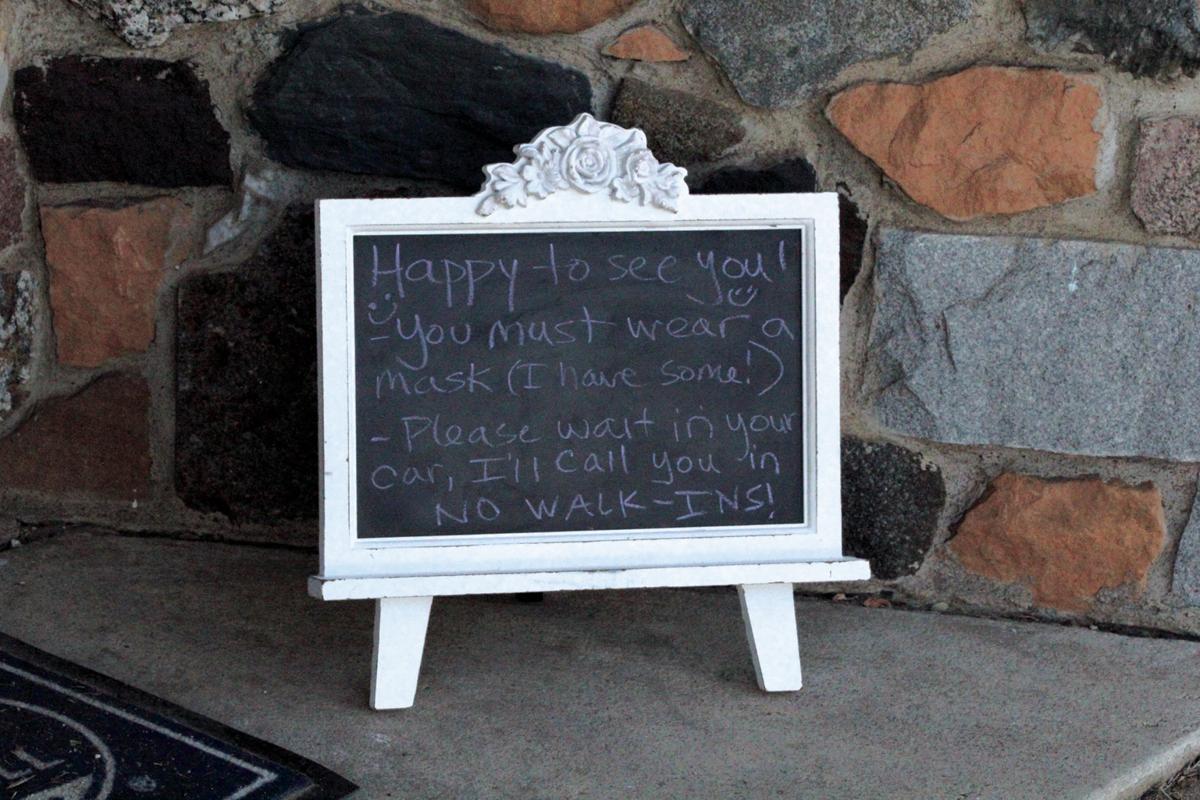 Happy to see you!
- you must wear a
mask (I have some!)
- Please wait in your
car, I'll call you in
NO WALK-INS!